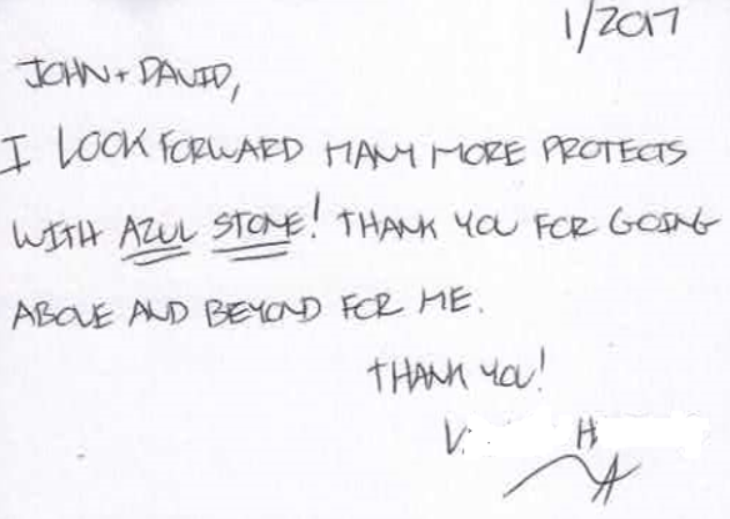 1/2017
JOHN + DAVID,
I LOOK FORWARD MANY MORE PROJECTS
WITH AZUL STONE! THANK YOU FOR GOING
ABOVE AND BEYOND FOR ME.
THANK YOU!
V H